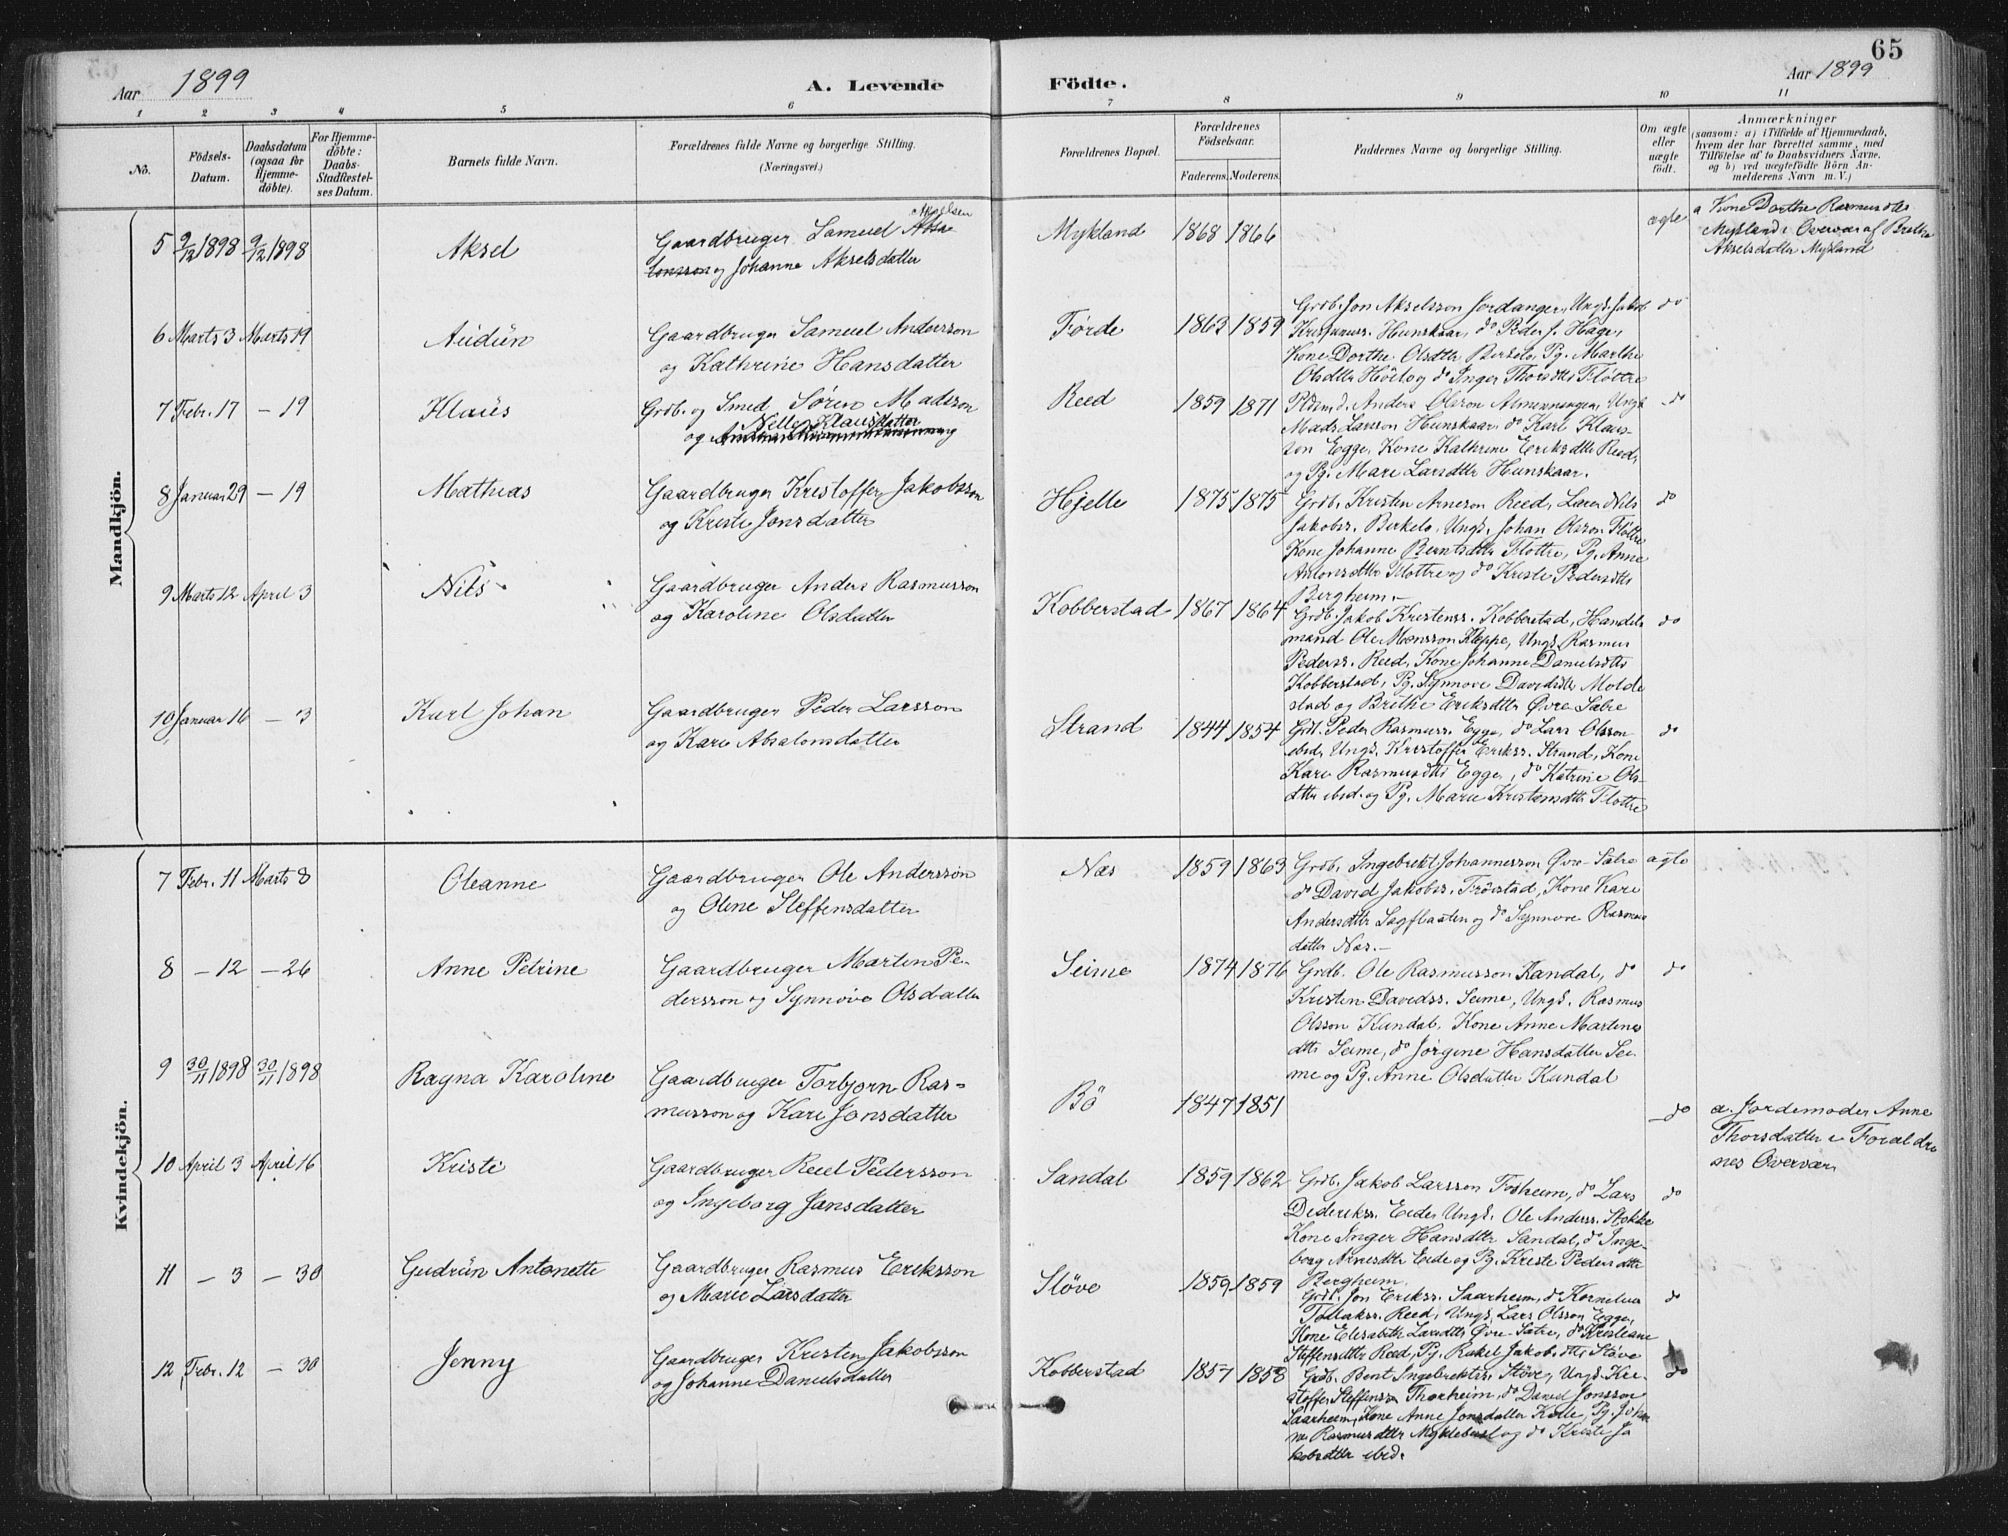 65
Aar 1899
A. Levende Födte.
Aar 1899
1 2 3 4 5 6 7 8 9 10 11
No.
Födsels-Datum.
Daabsdatum (ogsaa for Hjemmedöbte).
For Hjemmedöbte: Daabs-Stadfestelses Datum.
Barnets fulde Navn.
Forældrenes fulde Navne og borgerlige Stilling.
(Næringsvei.)
Forældrenes Bopæl.
Forældrenes Födselsaar.
Faderens. Moderens.
Faddernes Navne og borgerlige Stilling.
Om ægte eller uægte födt.
Anmærkninger
(saasom: a) i Tilfælde af Hjemmedaab,
hvem der har forrettet samme, med
Tilföielse af to Daabsvidners Navne,
og b) ved uægtefödte Börn Anmelderens Navn m. V.)
Mandkjön.
5 9/12 1898 9/12 1898 Aksel
Gaardbruger Samuel Akselsen
og Johanne Akselsdatter
Mykland 1868 1866 ægte
a Kone Dorthe Rasmusdtr.
Mykland i Overvær af Brethe
Akselsdatter Mykland
6 Marts 3 Marts 19 Audün
Gaardbruger Samuel Andersson
og Kathrine Hansdatter
Førde 1863 1859
Grdb. Jon Akselsson Jordanger, Ungk. Jakob do
Rasmuss. Hunskaar, do Peder J. Hage,
Kone Dorthe Olsdttr Birkelo, Pg. Marthe
Olsdttr Höilo og do Inger Thorsdttr Fløttre
7 Febr. 17 – 19 Klaüs
Grdb. og Smed Søren Madsson
og Nelle Klausdatter
Reed 1859 1871
Anders Olsson Almenningen, Ungk. do
Mads Larsson Hunskaar, do Karl Klaus-
son Egge, Kone Kathrine Eriksdttr Reed,
og Pg. Mari Larsdttr Hunskaar.
8 Januar 29 – 19 Mathias
Gaardbruger Kristoffer Jakobsson
og Kristi Jonsdatter
Hjelle 1875 1875
Grdb. Kristen Arneson Reed, Lærer Nils do
Jakobss. Birkelo, Ungk. Johan Olsson Fløttre
Kone Johanne Berntsdttr Fløttre, Pg. Anne
Antonsdttr Fløttre og do Kristi Pedersdttr
Bergheim.–
9 Marts 12 April 3 Nils
Gaardbruger Anders Rasmusson
og Karoline Olsdatter
Kobberstad 1867 1864
Grdb. Jakob Kristenss. Kobberstad, Handels do
mand Ole Monsson Kleppe, Ungk. Rasmus
Pederss. Reed, Kone Johanne Danielsdttr
Kobberstad, Pg. Synnove Davidsdttr Molde
stad og Brithe Eriksdttr Øvre Sætre
10 Januar 16 – 3 Karl Johan
Gaardbruger Peder Larsson
og Kari Absalonsdatter
Strand 1844 1854
Grdb. Peder Rasmuss. Egge, do Lars Olsson do
ibid, Ungk. Kristoffer Erikss. Strand, Kone
Kari Rasmusdttr Egge, do Katrine Ols-
dttr ibid. og Pg. Marie Kristensdttr Fløttre
Kvindekjön.
7 Febr. 11 Marts 8 Oleanne
Gaardbruger Ole Andersson
og Oline Steffensdatter
Næs 1859 1863
Grdb. Ingebrikt Johannesson Øvre-Sætre ægte
do David Jakobss. Fröistad, Kone Kari
Andersdttr Sagflaaten og do Synnove Rasmus
datter Næs.–
8 – 12 – 26 Anne Petrine
Gaardbruger Marten Pe-
dersson og Synnöve Olsdatter
Seime 1874 1876
Grdb. Ole Rasmusson Kandal, do do
Kristen Davidss. Seime, Ungk. Rasmus
Olsson Kandal, Kone Anne Martines
dttr Seime, do Jørgine Hansdatter Sei-
me og Pg. Anne Olsdatter Kandal
9 30/11 1898 30/11 1898 Ragna Karoline
Gaardbruger Torbjorn Ras-
musson og Kari Jonsdatter
Bö 1847 1851 do
a. Jordemoder Anne
Thorsdatter i Foræld re
nes Overvær
10 April 3 April 16 Kristi
Gaardbruger Reiel Pedersson
og Ingeborg Jonsdatter
Sandal 1859 1862
Grdb. Jakob Larsson Fosheim, do Lars do
Didrikss. Eide, Ungk. Ole Anderss. Stokke
Kone Inger Hansdttr Sandal, do Inge-
borg Arnesdttr Eide og Pg. Kristi Pedersdttr
Bergheim.
11 – 3 – 30 Gudrün Antonette
Gaardbruger Rasmus Eriksson
og Marie Larsdatter
Støve 1859 1859
Grdb. Jon Erikss. Saarheim, do Kornelius do
Tollakss. Reed, Ungk. Lars Olsson Egge,
Kone Elisabeth Larsdttr Øvre-Sætre, do Kristiane
Steffensdttr Reed, Pg. Rakel Jakobsdttr Støve
12 Febr. 12 – 30 Jenny
Gaardbruger Kristen Jakobsson
og Johanne Danielsdatter
Kobberstad 1857 1858
Grdb. Bent Ingebrektss. Støve, Ungk. Kri- do
stoffer Steffenss. Thorheim, do David Jonsson
Saarheim, Kone Anne Jonsdatter Kolle, Pg. Johan
ne Rasmusdttr Myklebust og do Kristi Ja
kobsdtter ibid.